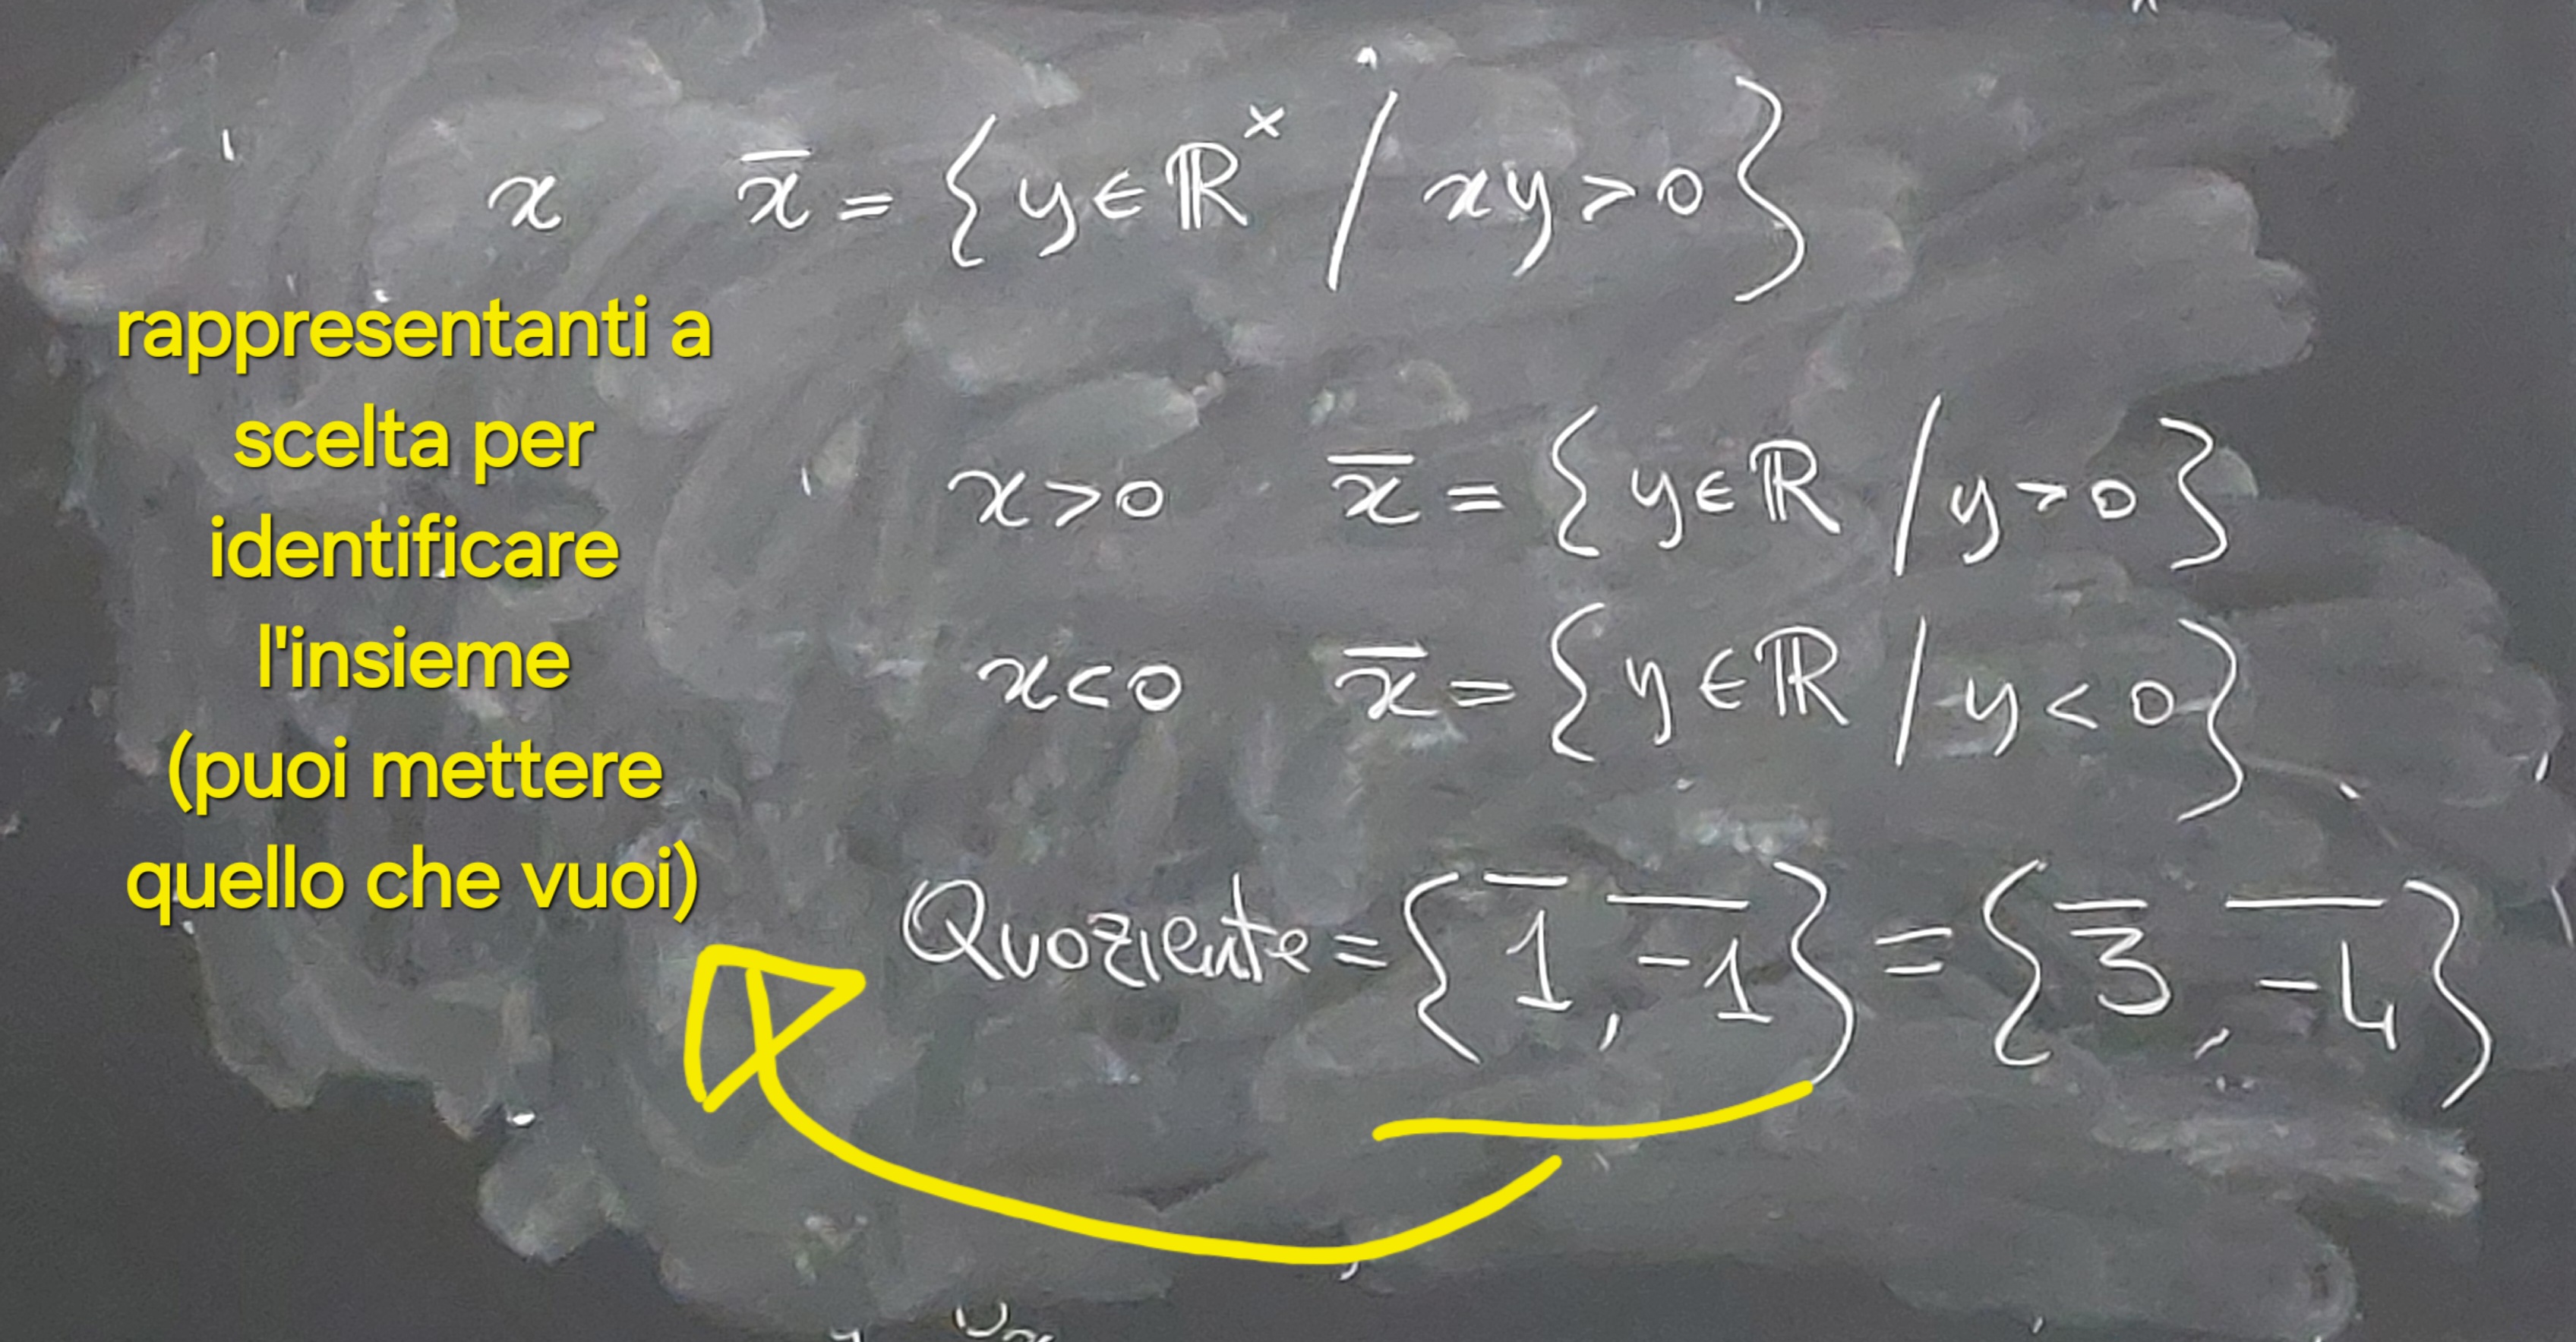 x x̅ = { y ∈ ℝ^× / xy > 0 }
rappresentanti a
scelta per
identificare
l'insieme
(puoi mettere
quello che vuoi)
x > 0 x̅ = { y ∈ ℝ / y > 0 }
x < 0 x̅ = { y ∈ ℝ / y < 0 }
Quoziente = { 1̅ , \overline{-1} } = { 3̅ , \overline{-4} }